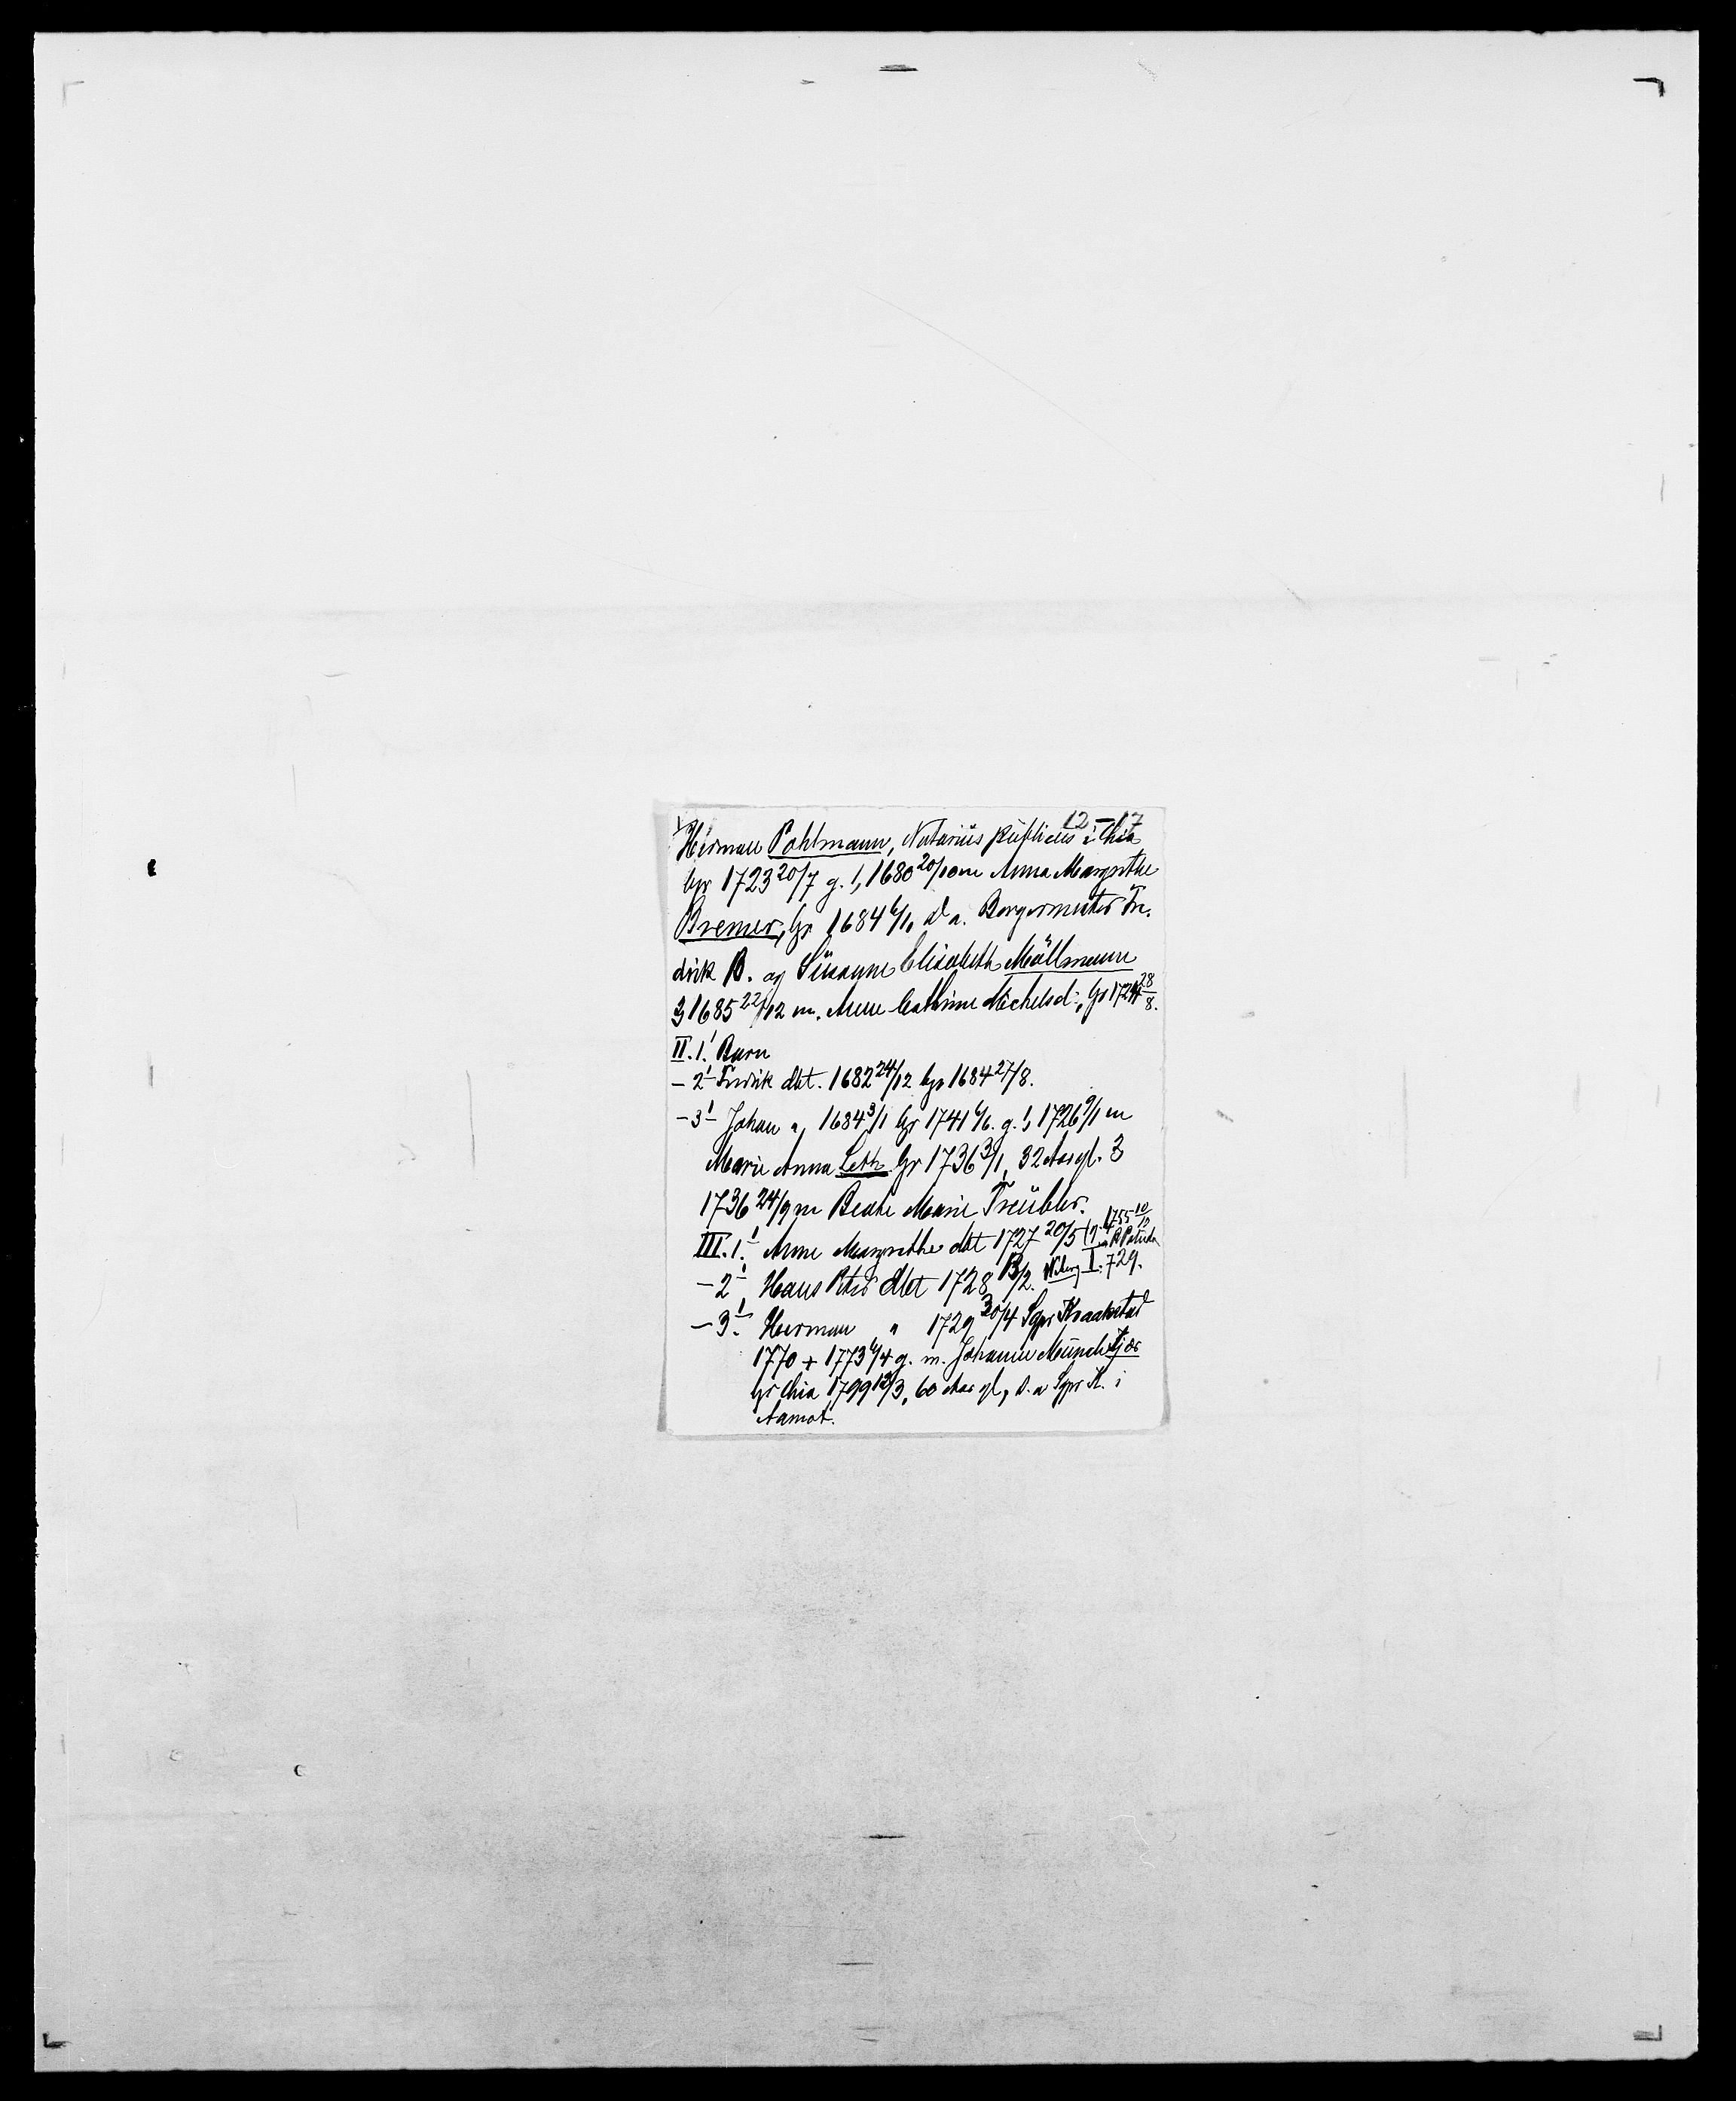 12-17
Herman Pohlmann, Notarius publicus i Chia
bgr 1723 20/7 g. 1, 1680 20/10 m Anna Margrethe
Bremer, bgr 1684 6/1, D a. Borgermester Fre-
drik B. og Susanne Elisabeth Möllmann
3 1685 22/12 m. Anne Cathrine Michelsd:, bgr 1724 28/8.
II. 1. Barn
- 2 - Fredrik dbt. 1682 24/12 bgr 1684 27/8.
- 3 - Johan " 1684 3/1 bgr 1741 6/6. g. 1, 1726 9/1 m
Marie Anna Leth bgr 1736 3/1, 32 Aar gl. 2
1736 24/9 m Beate Marie Treubler.
1755 10/10
III. 1. Anne Margrethe dbt 1727 20/5
- 2 Hans Peter dbt 1728 13/2. I. 729.
- 3. Herman " 1729 30/4 Sgpr Kraakstad
1770 + 1773 6/4 g. m. Johanne Munch
bgr Chia 1799 12/3, 60 Aar gl, D. a Sgpr K. i
Aamot.